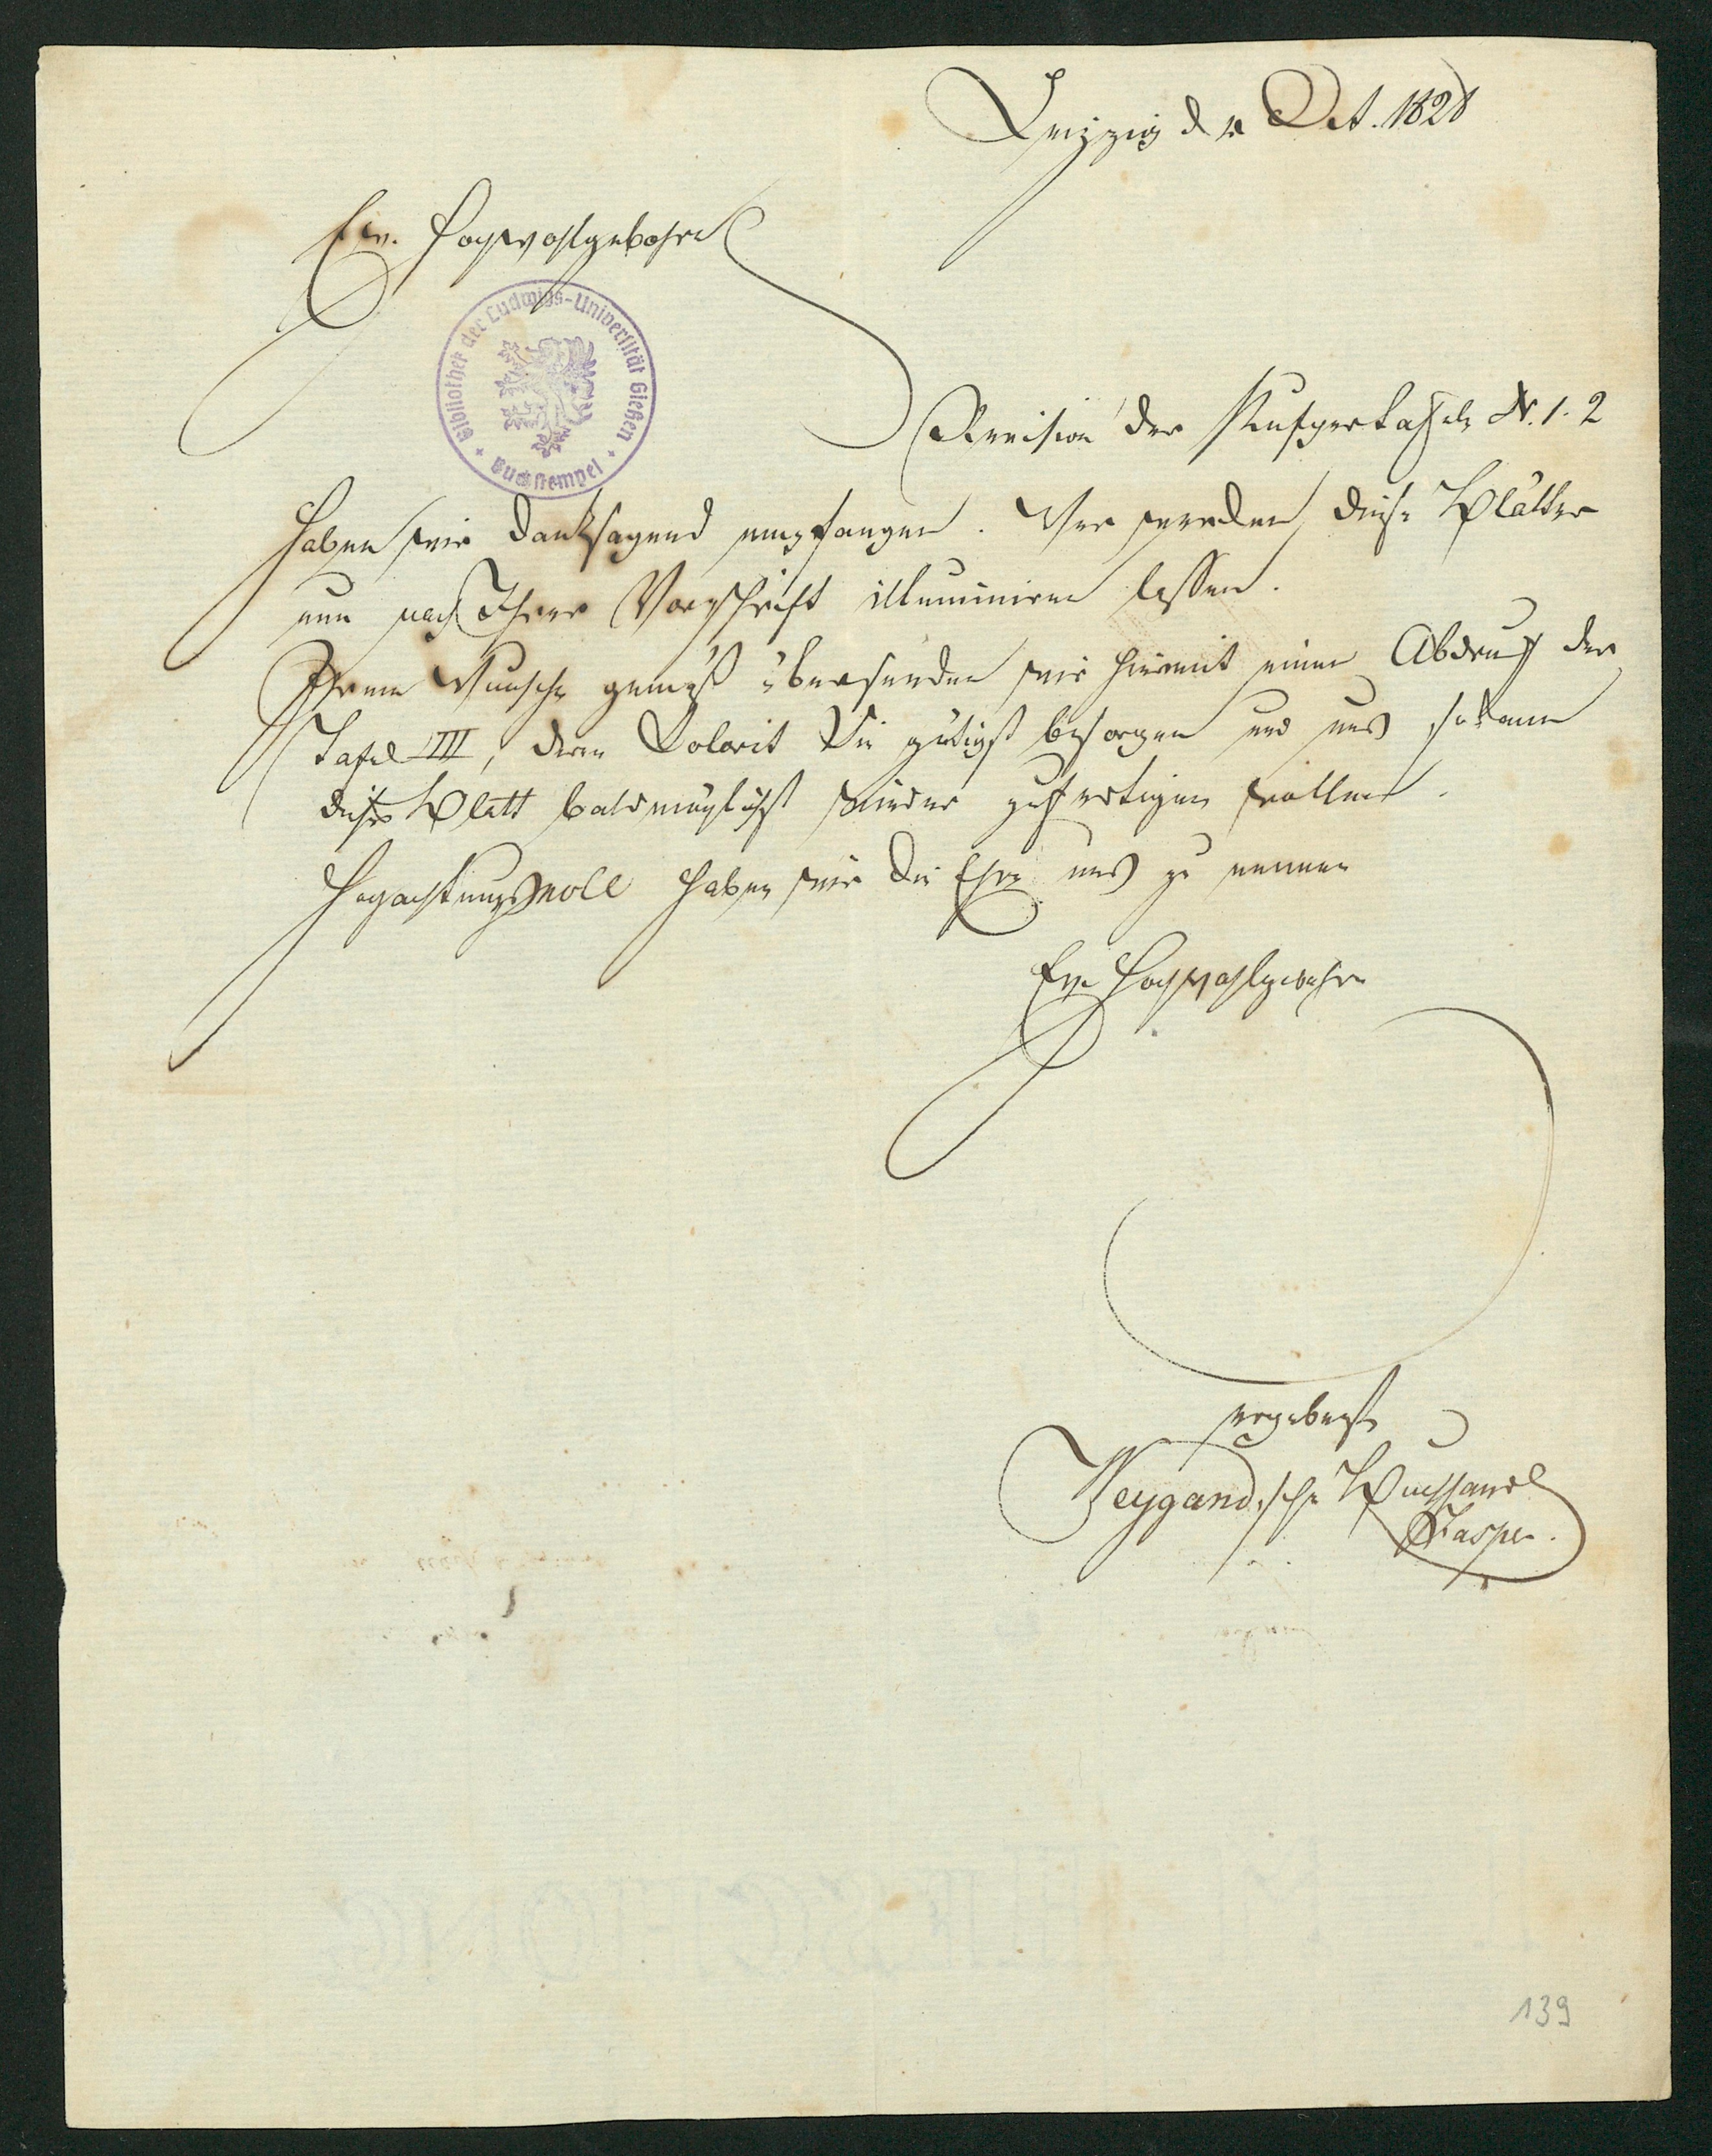 Leipzig d Oct. 1828
Ew. Hochwohlgebohrn
Bibliothek der Ludwigs-Universität Gießen
Buchstempel
Revision der Kupfertafeln N. 1. 2
haben wir danksagend empfangen. Wir werden diese Blätter
nun nach Ihrer Vorschrift illuminiren lassen.
Ihrem Wunsche gemäß übersenden wir hiermit einen Abdruck der
Tafel III, deren Colorit Sie gütigst besorgen und uns sodann
dieses Blatt baldmöglichst wieder zufertigen wollen.
Hochachtungsvoll haben wir die Ehre uns zu nennen
Ew Hochwohlgebohrn
ergebenste
Weygand,sche Buchhandl
Jasper.
139